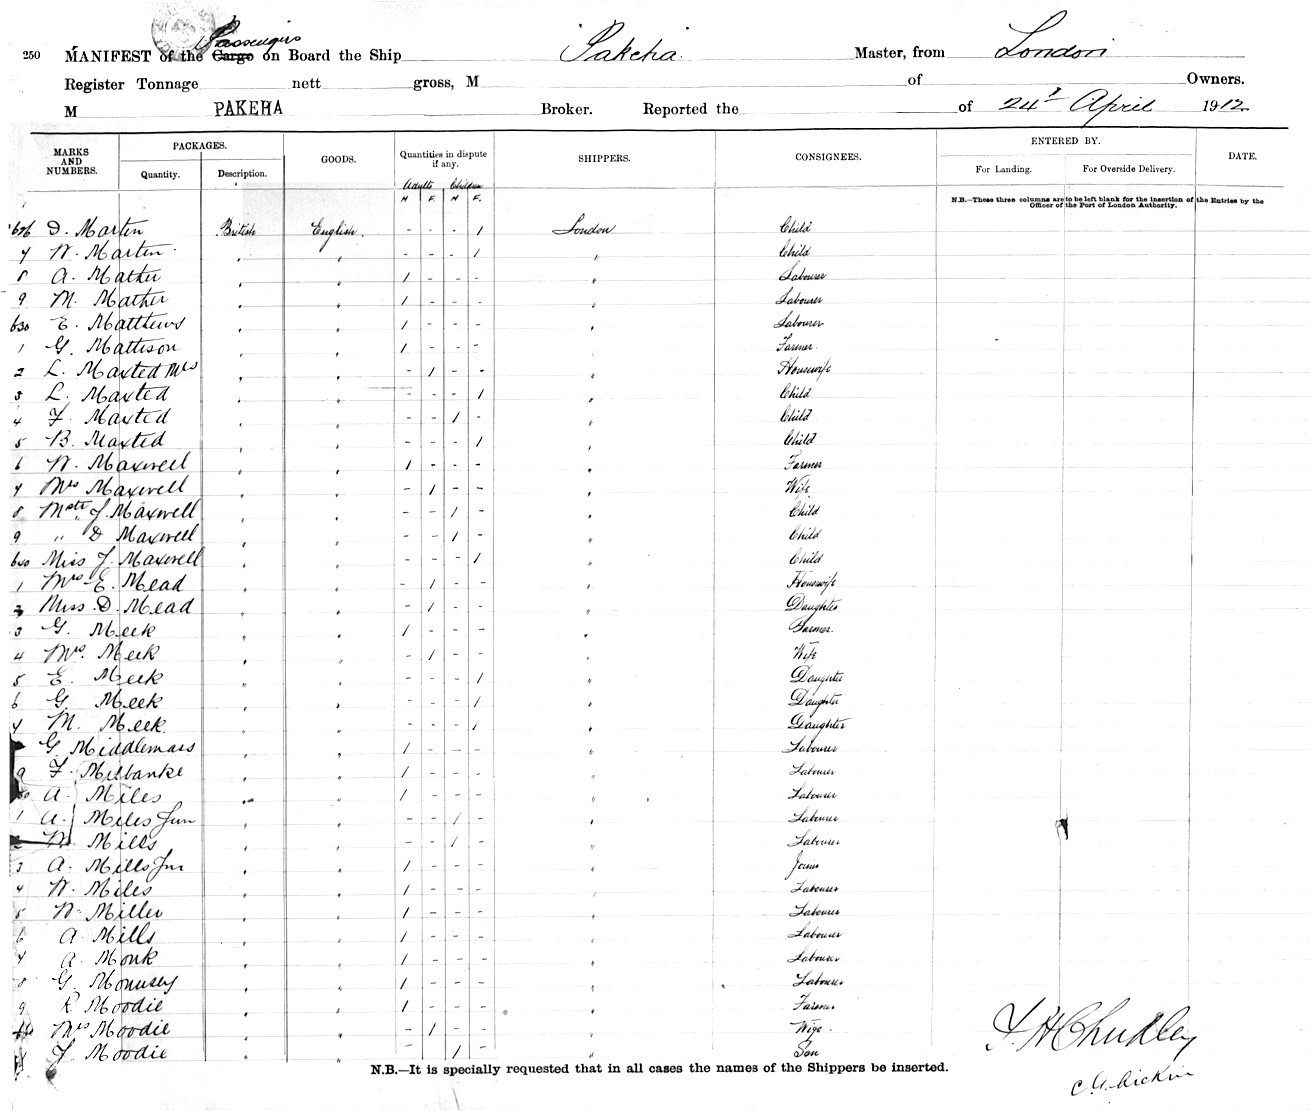 250 MANIFEST of the Cargo Passengers on Board the Ship Pakeha Master, from London
Register Tonnage nett gross, M of Owners.
M PAKEHA Broker. Reported the of 24 April 1912
MARKS AND NUMBERS. PACKAGES. Quantity. Description. GOODS. Quantities in dispute if any. SHIPPERS. CONSIGNEES. ENTERED BY. For Landing. For Overside Delivery. DATE.
Adults Children
M F. M F.
N.B.—These three columns are to be left blank for the insertion of the Entries by the Officer of the Port of London Authority.
626 D. Marten British English. - - - 1 London Child
7 W. Marten " " - - - 1 " Child
8 A. Mather " " 1 - - - " Labourer
9 M. Mather " " 1 - - - " Labourer
630 E. Matthews " " 1 - - - " Labourer
1 G. Mattison " " 1 - - - " Farmer
2 L. Maxted Mrs " " - 1 - - " Housewife
3 L. Maxted " " - - - 1 " Child
4 F. Maxted " " - - 1 - " Child
5 B. Maxted " " - - - 1 " Child
6 W. Maxwell " " 1 - - - " Farmer
7 Mrs Maxwell " " - 1 - - " Wife
8 Mstr J. Maxwell " " - - 1 - " Child
9 " D Maxwell " " - - 1 - " Child
640 Miss J. Maxwell " " - - - 1 " Child
1 Mrs E. Mead " " - 1 - - " Housewife
2 Miss D. Mead " " - 1 - - " Daughter
3 G. Meek " " 1 - - - " Farmer.
4 Mrs. Meek " " - 1 - - " Wife
5 E. Meek " " - - - 1 " Daughter
6 G. Meek " " - - - 1 " Daughter
7 M. Meek. " " - - - 1 " Daughter
G. Middlemass " " 1 - - - " Labourer
9 F. Milbanke " " 1 - - - " Labourer
50 A. Miles " " 1 - - - " Labourer
1 A. Miles Jun " " - - 1 - " Labourer
2 W. Mills " " - - 1 - " Labourer
3 A. Mills Jnr " " 1 - - - " Joiner
4 W. Miles " " 1 - - - " Labourer
5 W. Miller " " 1 - - - " Labourer
6 A. Mills " " 1 - - - " Labourer
7 A. Monk " " 1 - - - " Labourer
8 G. " " 1 - - - " Labourer
9 R Moodie " " 1 - - - " Farmer
660 Mrs Moodie " " - 1 - - " Wife.
1 J Moodie " " - - 1 - " Son
N.B.—It is specially requested that in all cases the names of the Shippers be inserted.
F. H Chudley